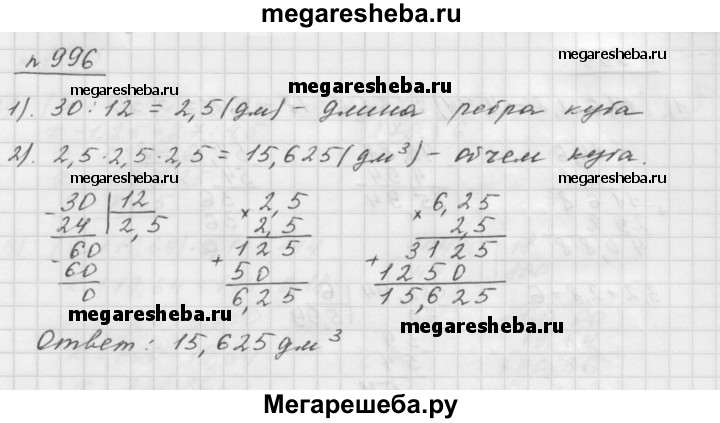 megaresheba.ru
n 996
megaresheba.ru
megaresheba.ru
megaresheba.ru
1). 30 : 12 = 2,5 (дм) - длина ребра куба
2). 2,5 · 2,5 · 2,5 = 15,625 (дм³) - объем куба.
megaresheba.ru
megaresheba.ru
- 30 | 12
24 | 2,5
- 60
60
0
× 2,5
2,5
+ 125
50
6,25
× 6,25
2,5
+ 3125
1250
15,625
megaresheba.ru
megaresheba.ru
Ответ: 15,625 дм³
Мегарешеба.ру